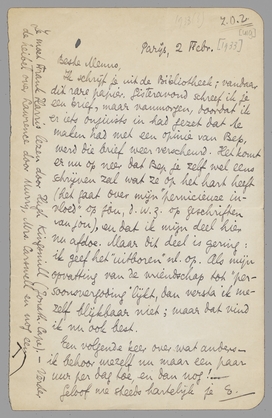 Parijs, 2 Febr. [1933]
Beste Menno,
Ik schrijf je uit de Bibliotheek; vandaar
dit rare papier. Gisteravond schreef ik je
een brief, maar vanmorgen, doordat ik
er iets onjuists in had gezet dat te
maken had met een opinie van Bep,
werd die brief weer verscheurd. Het komt
er nu op neer dat Bep je zelf wel eens
schrijven zal wat ze op het hart heeft
(het gaat over mijn "pernicieuze in-
vloed" op jou, d.w.z. op geschriften
van jou), en dat ik mijn deel hier
nu afdoe. Maar dit deel is gering:
ik geef het "uitboren" nl. op. Als mijn
opvatting van de vriendschap tot "per-
soonsvergoding" lijkt, dan versta ik me-
zelf blijkbaar niet; maar dat vind
ik nu ook best.
Een volgende keer over wat anders —
ik behoor mezelf nu maar een paar
uur per dag toe, en dan nog! —
Geloof me steeds hartelijk je E.
Je moet Frank Harris lezen door Hugh Kingsmill (Jonathan Cape). – Verder
de reeks over Lawrence door Murry, Mrs Carswell en nog een